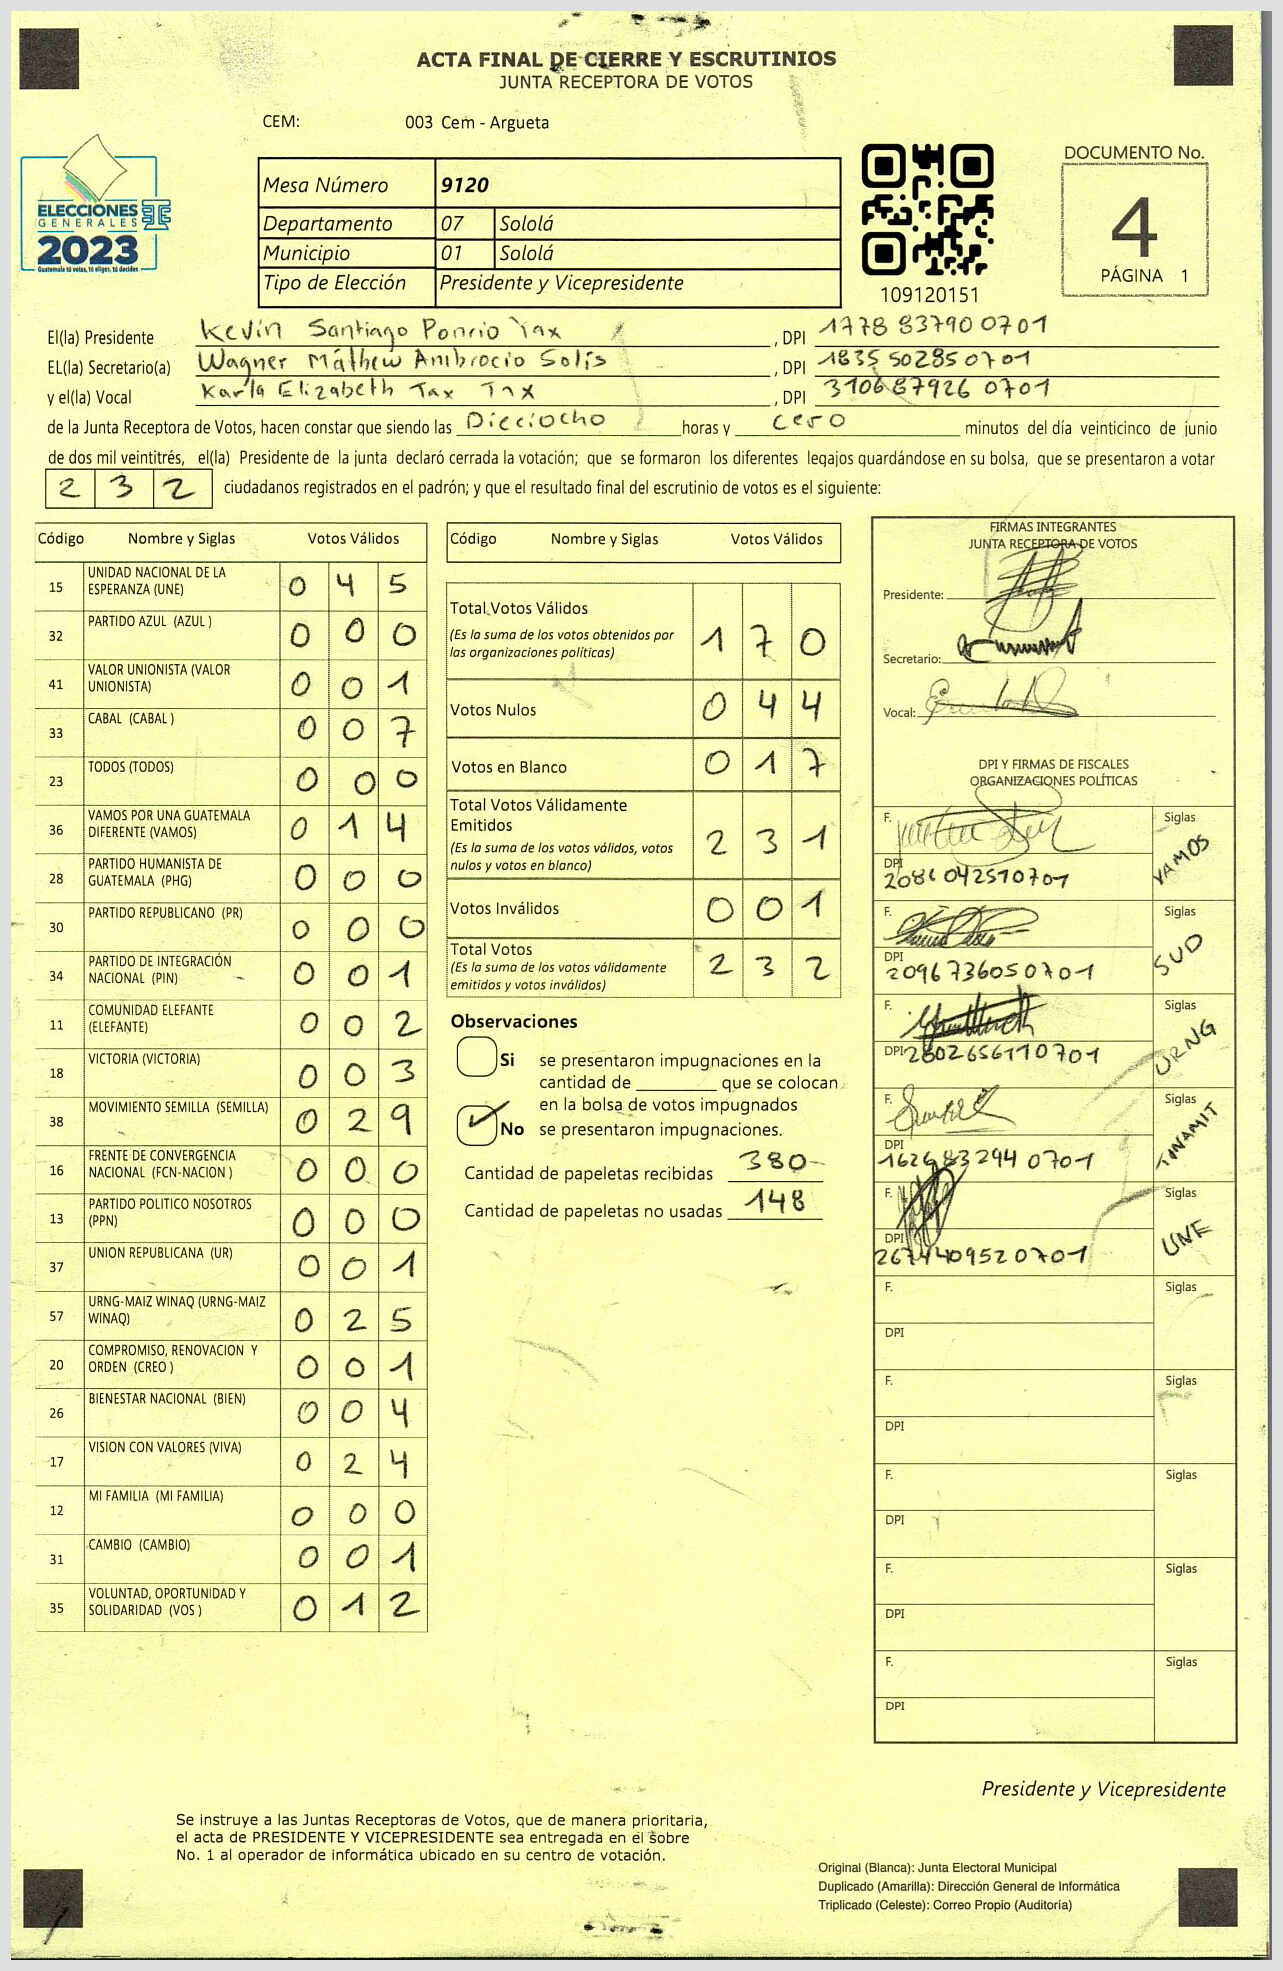 ACTA FINAL DE CIERRE Y ESCRUTINIOS
JUNTA RECEPTORA DE VOTOS
CEM: 003 Cem - Argueta
ELECCIONES
GENERALES
2023
Guatemala tú votas, tú eliges, tú decides
Mesa Número 9120
Departamento 07 Sololá
Municipio 01 Sololá
Tipo de Elección Presidente y Vicepresidente
109120151
DOCUMENTO No.
4
PÁGINA 1
El(la) Presidente Kevin Santiago Poncio Tax , DPI 1778 83790 0701
EL(la) Secretario(a) Wagner Máthew Ambrocio Solís , DPI 1835 50285 0701
y el(la) Vocal Karla Elizabeth Tax Tax , DPI 310687926 0701
de la Junta Receptora de Votos, hacen constar que siendo las Dieciocho horas y cero minutos del día veinticinco de junio
de dos mil veintitrés, el(la) Presidente de la junta declaró cerrada la votación; que se formaron los diferentes legajos guardándose en su bolsa, que se presentaron a votar
2 3 2 ciudadanos registrados en el padrón; y que el resultado final del escrutinio de votos es el siguiente:
Código Nombre y Siglas Votos Válidos
15 UNIDAD NACIONAL DE LA ESPERANZA (UNE) 0 4 5
32 PARTIDO AZUL (AZUL ) 0 0 0
41 VALOR UNIONISTA (VALOR UNIONISTA) 0 0 1
33 CABAL (CABAL ) 0 0 7
23 TODOS (TODOS) 0 0 0
36 VAMOS POR UNA GUATEMALA DIFERENTE (VAMOS) 0 1 4
28 PARTIDO HUMANISTA DE GUATEMALA (PHG) 0 0 0
30 PARTIDO REPUBLICANO (PR) 0 0 0
34 PARTIDO DE INTEGRACIÓN NACIONAL (PIN) 0 0 1
11 COMUNIDAD ELEFANTE (ELEFANTE) 0 0 2
18 VICTORIA (VICTORIA) 0 0 3
38 MOVIMIENTO SEMILLA (SEMILLA) 0 2 9
16 FRENTE DE CONVERGENCIA NACIONAL (FCN-NACION ) 0 0 0
13 PARTIDO POLITICO NOSOTROS (PPN) 0 0 0
37 UNION REPUBLICANA (UR) 0 0 1
57 URNG-MAIZ WINAQ (URNG-MAIZ WINAQ) 0 2 5
20 COMPROMISO, RENOVACION Y ORDEN (CREO ) 0 0 1
26 BIENESTAR NACIONAL (BIEN) 0 0 4
17 VISION CON VALORES (VIVA) 0 2 4
12 MI FAMILIA (MI FAMILIA) 0 0 0
31 CAMBIO (CAMBIO) 0 0 1
35 VOLUNTAD, OPORTUNIDAD Y SOLIDARIDAD (VOS ) 0 1 2
Código Nombre y Siglas Votos Válidos
Total Votos Válidos
(Es la suma de los votos obtenidos por
las organizaciones políticas) 1 7 0
Votos Nulos 0 4 4
Votos en Blanco 0 1 7
Total Votos Válidamente
Emitidos
(Es la suma de los votos válidos, votos
nulos y votos en blanco) 2 3 1
Votos Inválidos 0 0 1
Total Votos
(Es la suma de los votos válidamente
emitidos y votos inválidos) 2 3 2
Observaciones
Si se presentaron impugnaciones en la
cantidad de ________ que se colocan
en la bolsa de votos impugnados
No se presentaron impugnaciones.
Cantidad de papeletas recibidas 380
Cantidad de papeletas no usadas 148
FIRMAS INTEGRANTES
JUNTA RECEPTORA DE VOTOS
Presidente:
Secretario:
Vocal:
DPI Y FIRMAS DE FISCALES
ORGANIZACIONES POLÍTICAS
F. Siglas VAMOS
DPI 2086 042510701
F. Siglas SUD
DPI 2096736050701
F. Siglas URNG
DPI 2602656110701
F. Siglas WINAMIT
DPI 1626 83294 0701
F. Siglas UNE
DPI 2674409520701
F. Siglas
DPI
F. Siglas
DPI
F. Siglas
DPI
F. Siglas
DPI
F. Siglas
DPI
Presidente y Vicepresidente
Se instruye a las Juntas Receptoras de Votos, que de manera prioritaria,
el acta de PRESIDENTE Y VICEPRESIDENTE sea entregada en el sobre
No. 1 al operador de informática ubicado en su centro de votación.
Original (Blanca): Junta Electoral Municipal
Duplicado (Amarilla): Dirección General de Informática
Triplicado (Celeste): Correo Propio (Auditoría)